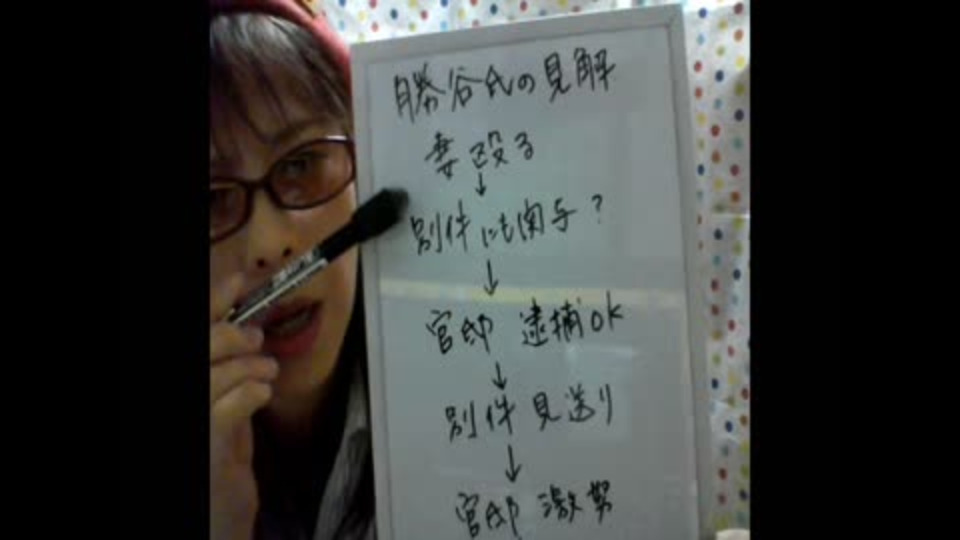 勝谷氏の見解
妻殴る
↓
別件にも関与？
↓
官邸 逮捕OK
↓
別件 見送り
↓
官邸 激怒